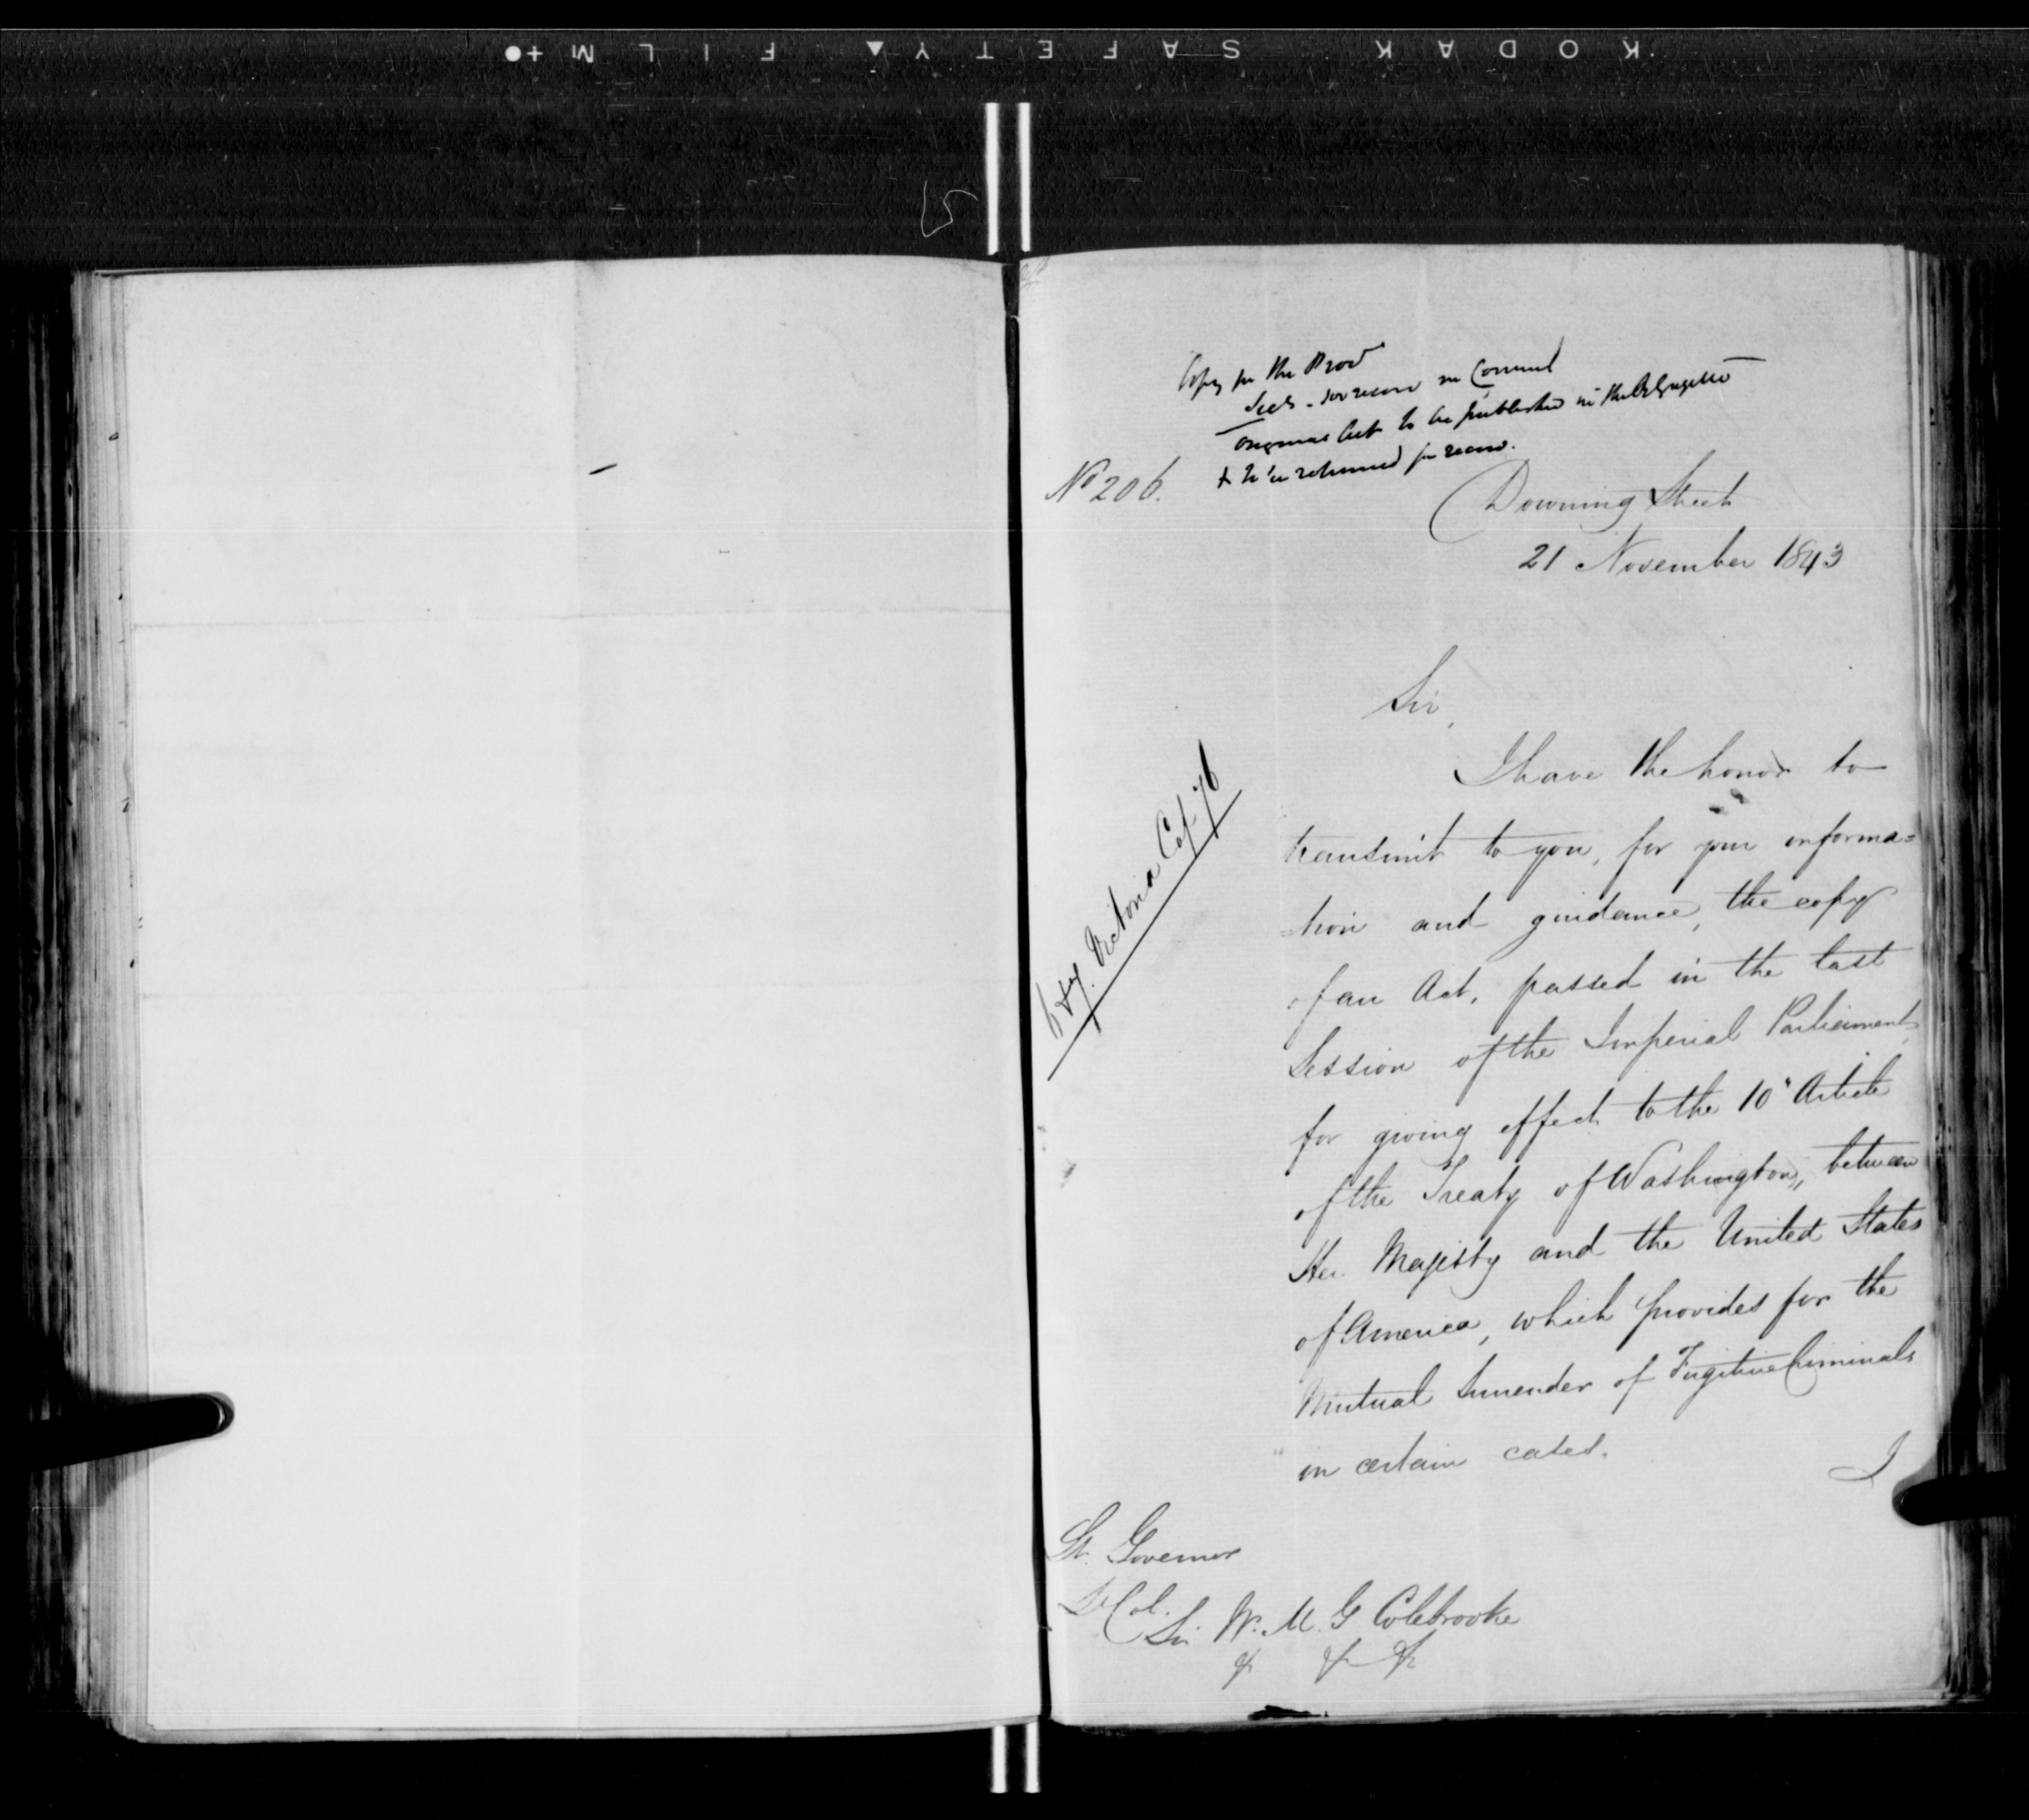 KODAK SAFETY FILM
Copy for the Prov
Secy - for record in Council
original Act to be published in the Gazette
& to be returned for record.
No 206.
Downing Street
21 November 1843
Sir,
I have the honor to
transmit to you, for your informa=
=tion and guidance, the copy
of an Act, passed in the last
Session of the Imperial Parliament,
for giving effect to the 10" Article
of the Treaty of Washington, between
Her Majesty and the United States
of America, which provides for the
Mutual Surrender of Fugitive Criminals
in certain cases.
I
6 & 7. Victoria Cap 76
Lt. Governor
Lt Col.
Sir W. M. G Colebrooke
&c &c &c